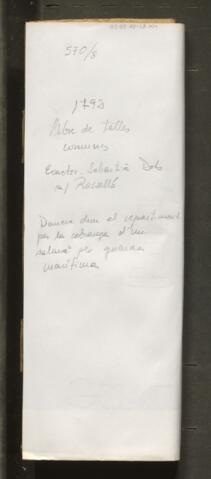 570/8
1793
Llibre de talles
comunes
Exactor. Sebastià
Rosselló
Darrera duu el repartiment
per la cobrança d'un
per guarda
marítima